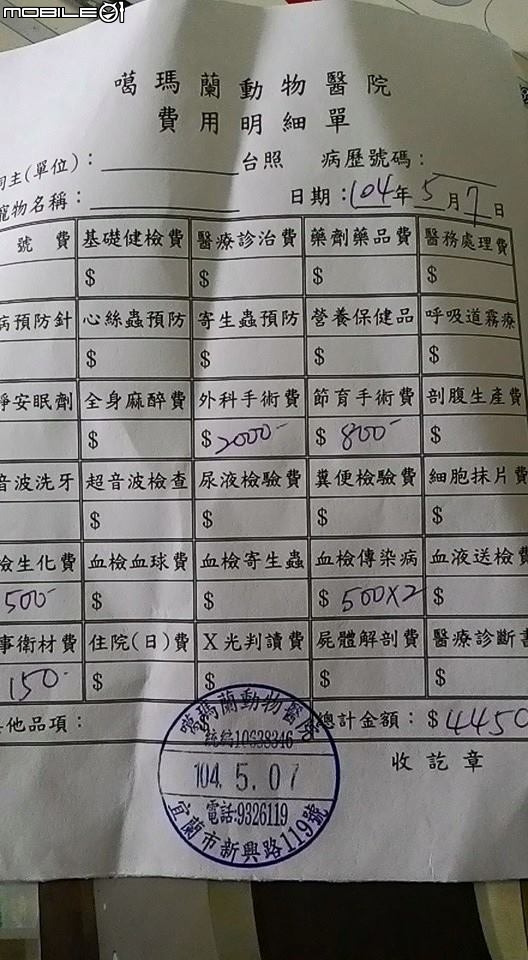 MOBILE01
噶瑪蘭動物醫院
費用明細單
主(單位)： 台照 病歷號碼：
寵物名稱： 日期：104年5月7日
號費 基礎健檢費 醫療診治費 藥劑藥品費 醫務處理費
$ $ $ $
病預防針 心絲蟲預防 寄生蟲預防 營養保健品 呼吸道霧療
$ $ $ $
靜安眠劑 全身麻醉費 外科手術費 節育手術費 剖腹生產費
$ $2000- $800- $
音波洗牙 超音波檢查 尿液檢驗費 糞便檢驗費 細胞抹片費
$ $ $ $
檢生化費 血檢血球費 血檢寄生蟲 血檢傳染病 血液送檢費
500- $ $ $500X2 $
事衛材費 住院(日)費 X光判讀費 屍體解剖費 醫療診斷書
150- $ $ $ $
其他品項： 總計金額：$4450
收訖章
噶瑪蘭動物醫院
統編10638346
104. 5. 07
電話:9326119
宜蘭市新興路119號